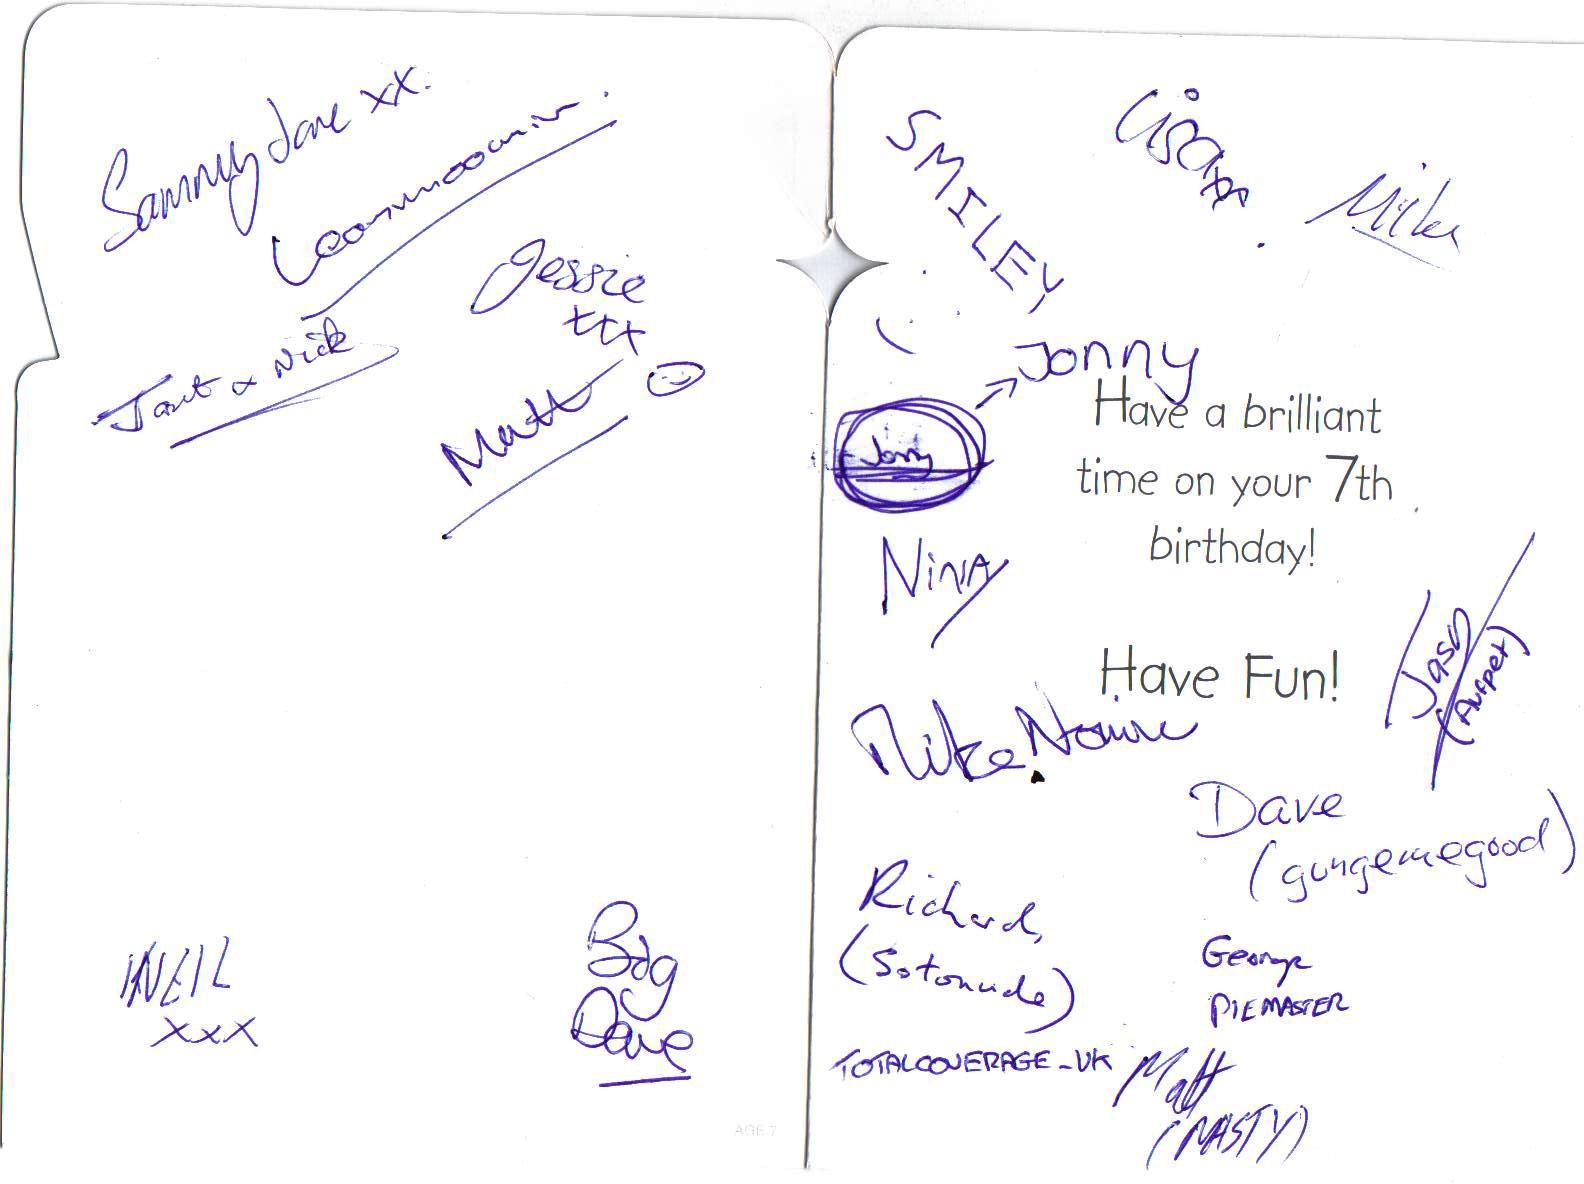 Sammy Jane xx.
Jessie
xxx
Janet & Nick
Matt
NEIL
xxx
Big
Dave
AGE 7
SMILEY
Lisa xx
Mike
Jonny
Jonny
Have a brilliant
time on your 7th
birthday!
NiNA
Have Fun!
Jason
(Aufpet)
Mike
Dave
(gungemegood)
Richard,
(Sotonude)
George
PIEMASTER
TOTALCOVERAGE_UK
Matt
(NASTY)